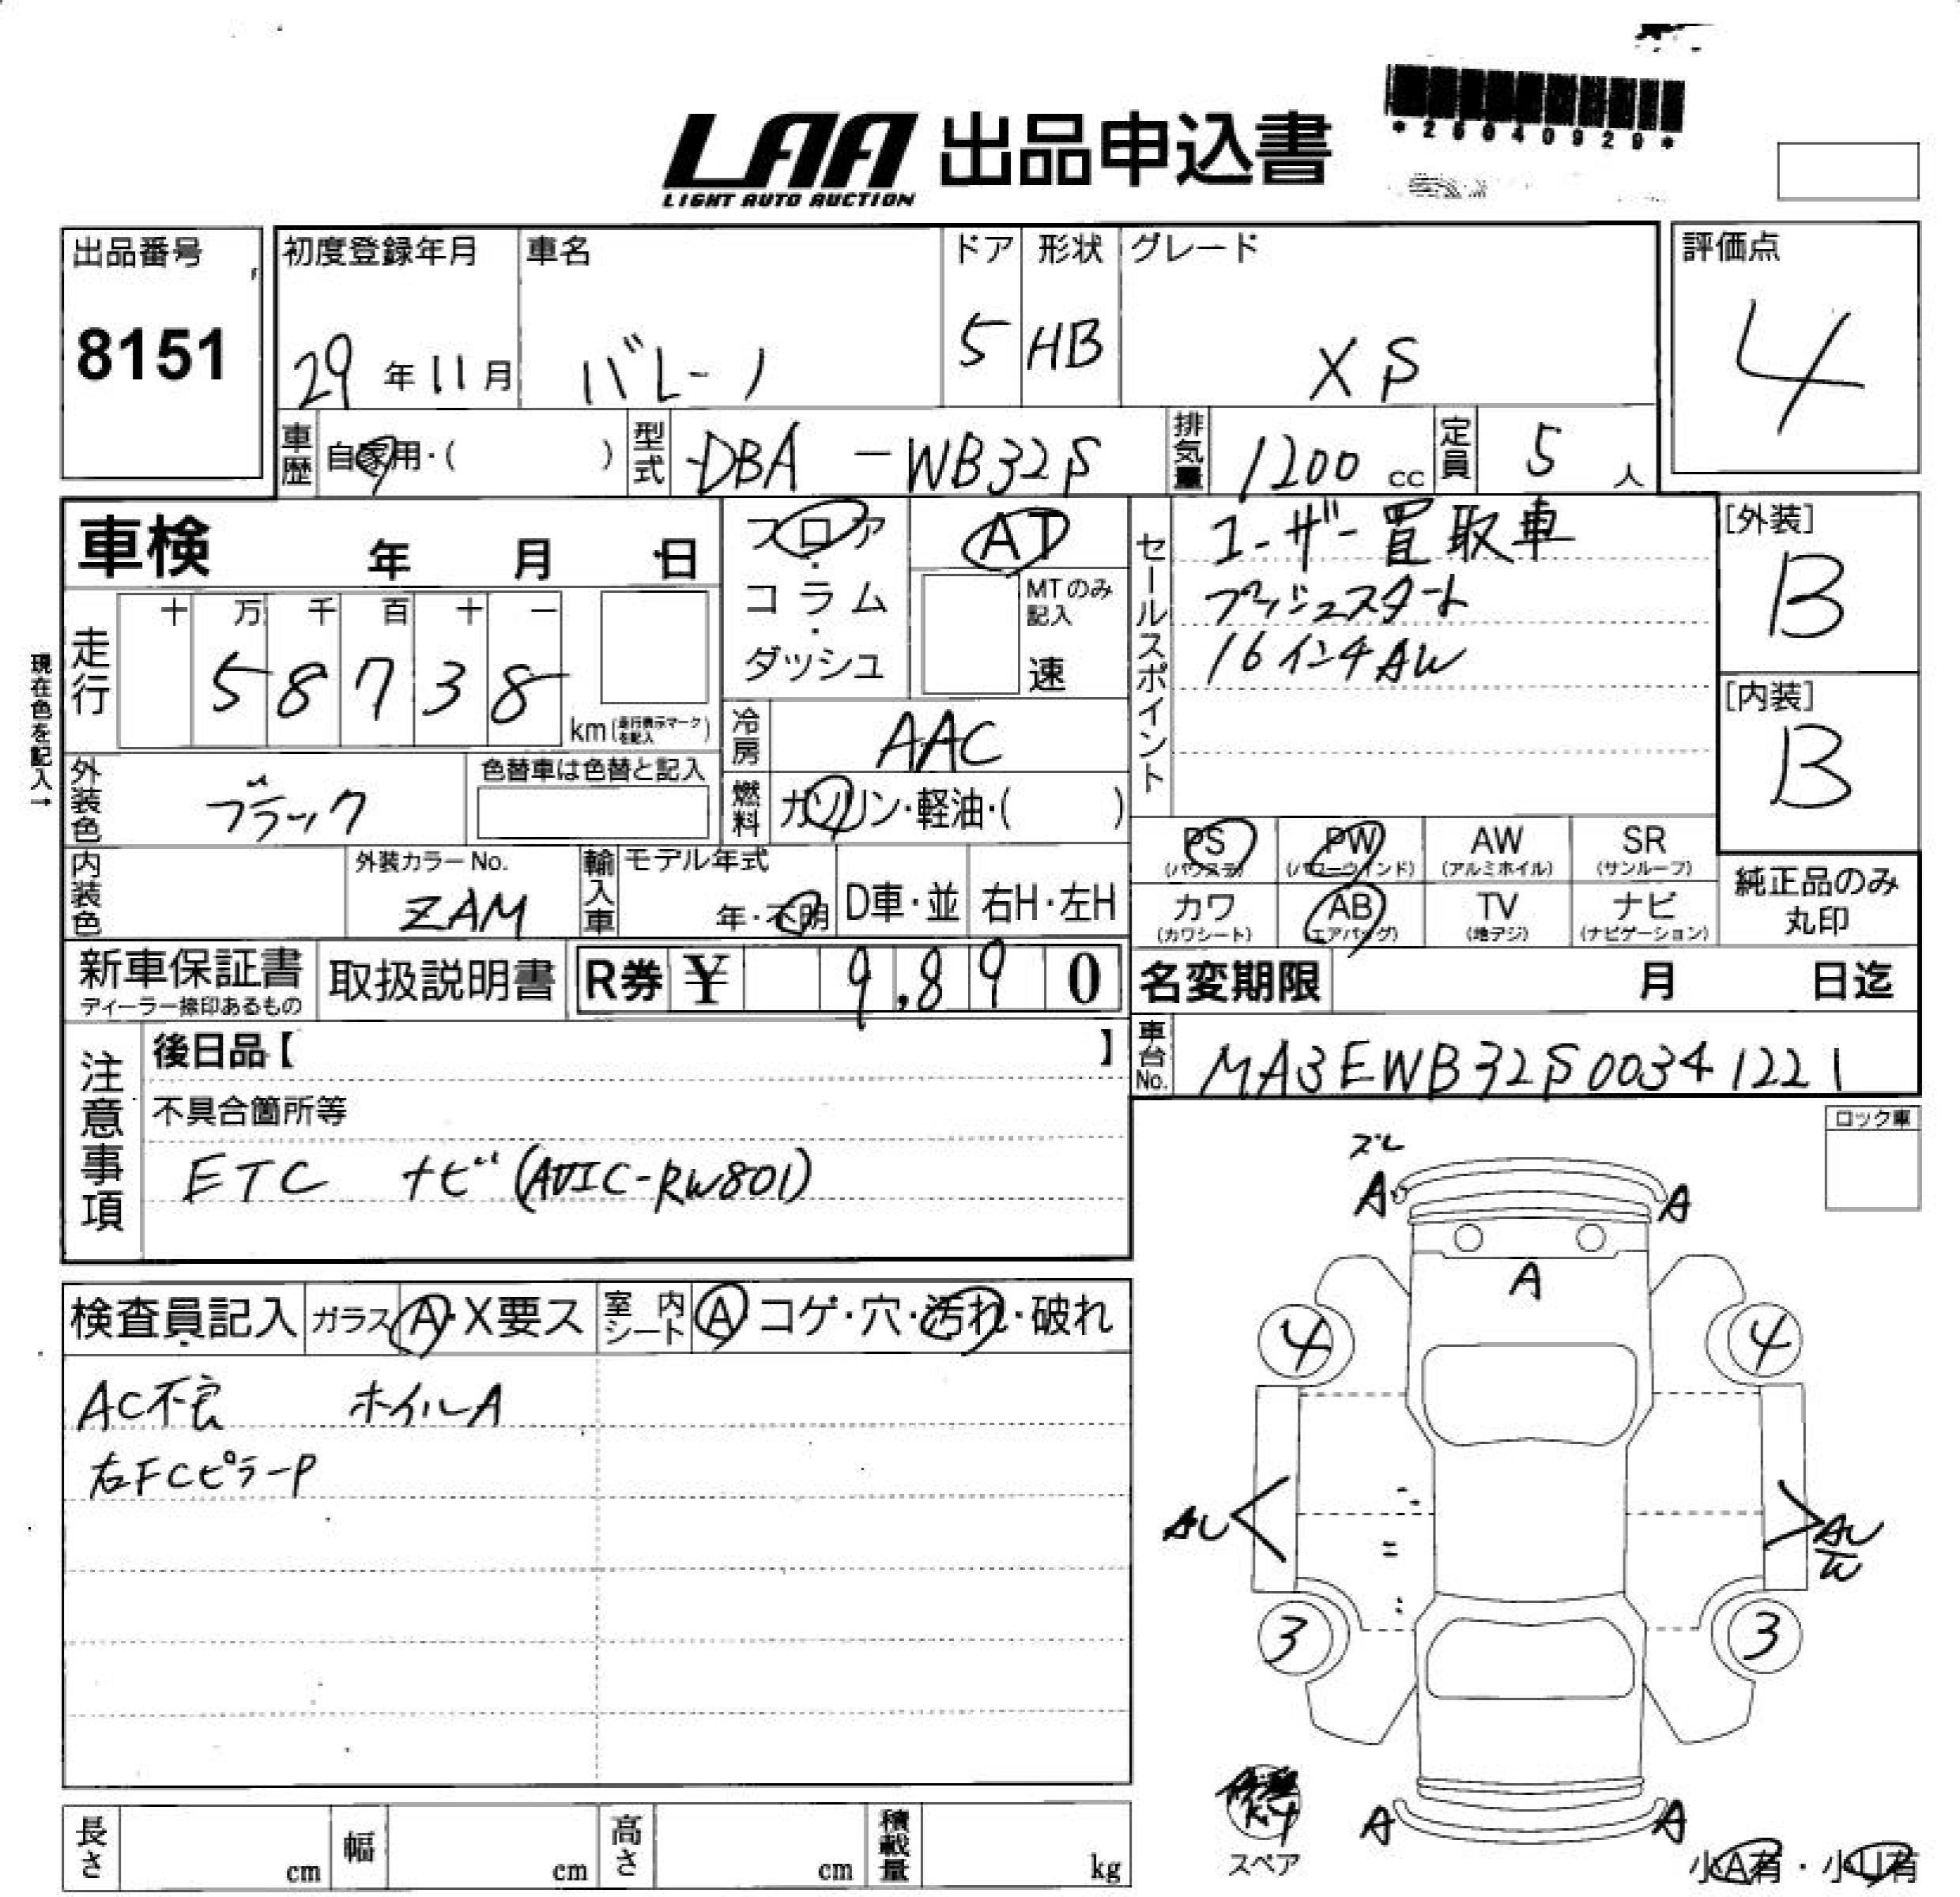 *26040929*
LAA 出品申込書
LIGHT AUTO AUCTION
出品番号
8151
初度登録年月
29年11月
車名
バレーノ
ドア
5
形状
HB
グレード
XS
評価点
4
車歴 自家用・( )
型式 DBA-WB32S
排気量 1200cc
定員 5人
車検 年 月 日
フロア・コラム・ダッシュ
AT
MTのみ記入
速
セールスポイント
ユーザー買取車
プッシュスタート
16インチAW
[外装]
B
[内装]
B
現在色を記入→
走行
十 万 千 百 十 一
58738
km(走行表示マークを記入)
冷房 AAC
外装色 ブラック
色替車は色替と記入
燃料 ガソリン・軽油・( )
PS (パワステ)
PW (パワーウインド)
AW (アルミホイル)
SR (サンルーフ)
カワ (カワシート)
AB (エアバッグ)
TV (地デジ)
ナビ (ナビゲーション)
純正品のみ丸印
内装色
外装カラーNo.
ZAM
輸入車
モデル年式
年・不明
D車・並
右H・左H
新車保証書
ディーラー捺印あるもの
取扱説明書
R券 ¥ 9,890
名変期限 月 日迄
車台No. MA3EWB32S00341221
注意事項
後日品【 】
不具合箇所等
ETC ナビ(AVIC-RW801)
ロック車
検査員記入
ガラス A・X要ス
室内シート A・コゲ・穴・汚れ・破れ
AC不良 ホイルA
右FCピラーP
ズレ
A A
A
4 4
AU AU
W
3 3
スペア
A A
小A有・小U有
長さ cm
幅 cm
高さ cm
積載量 kg